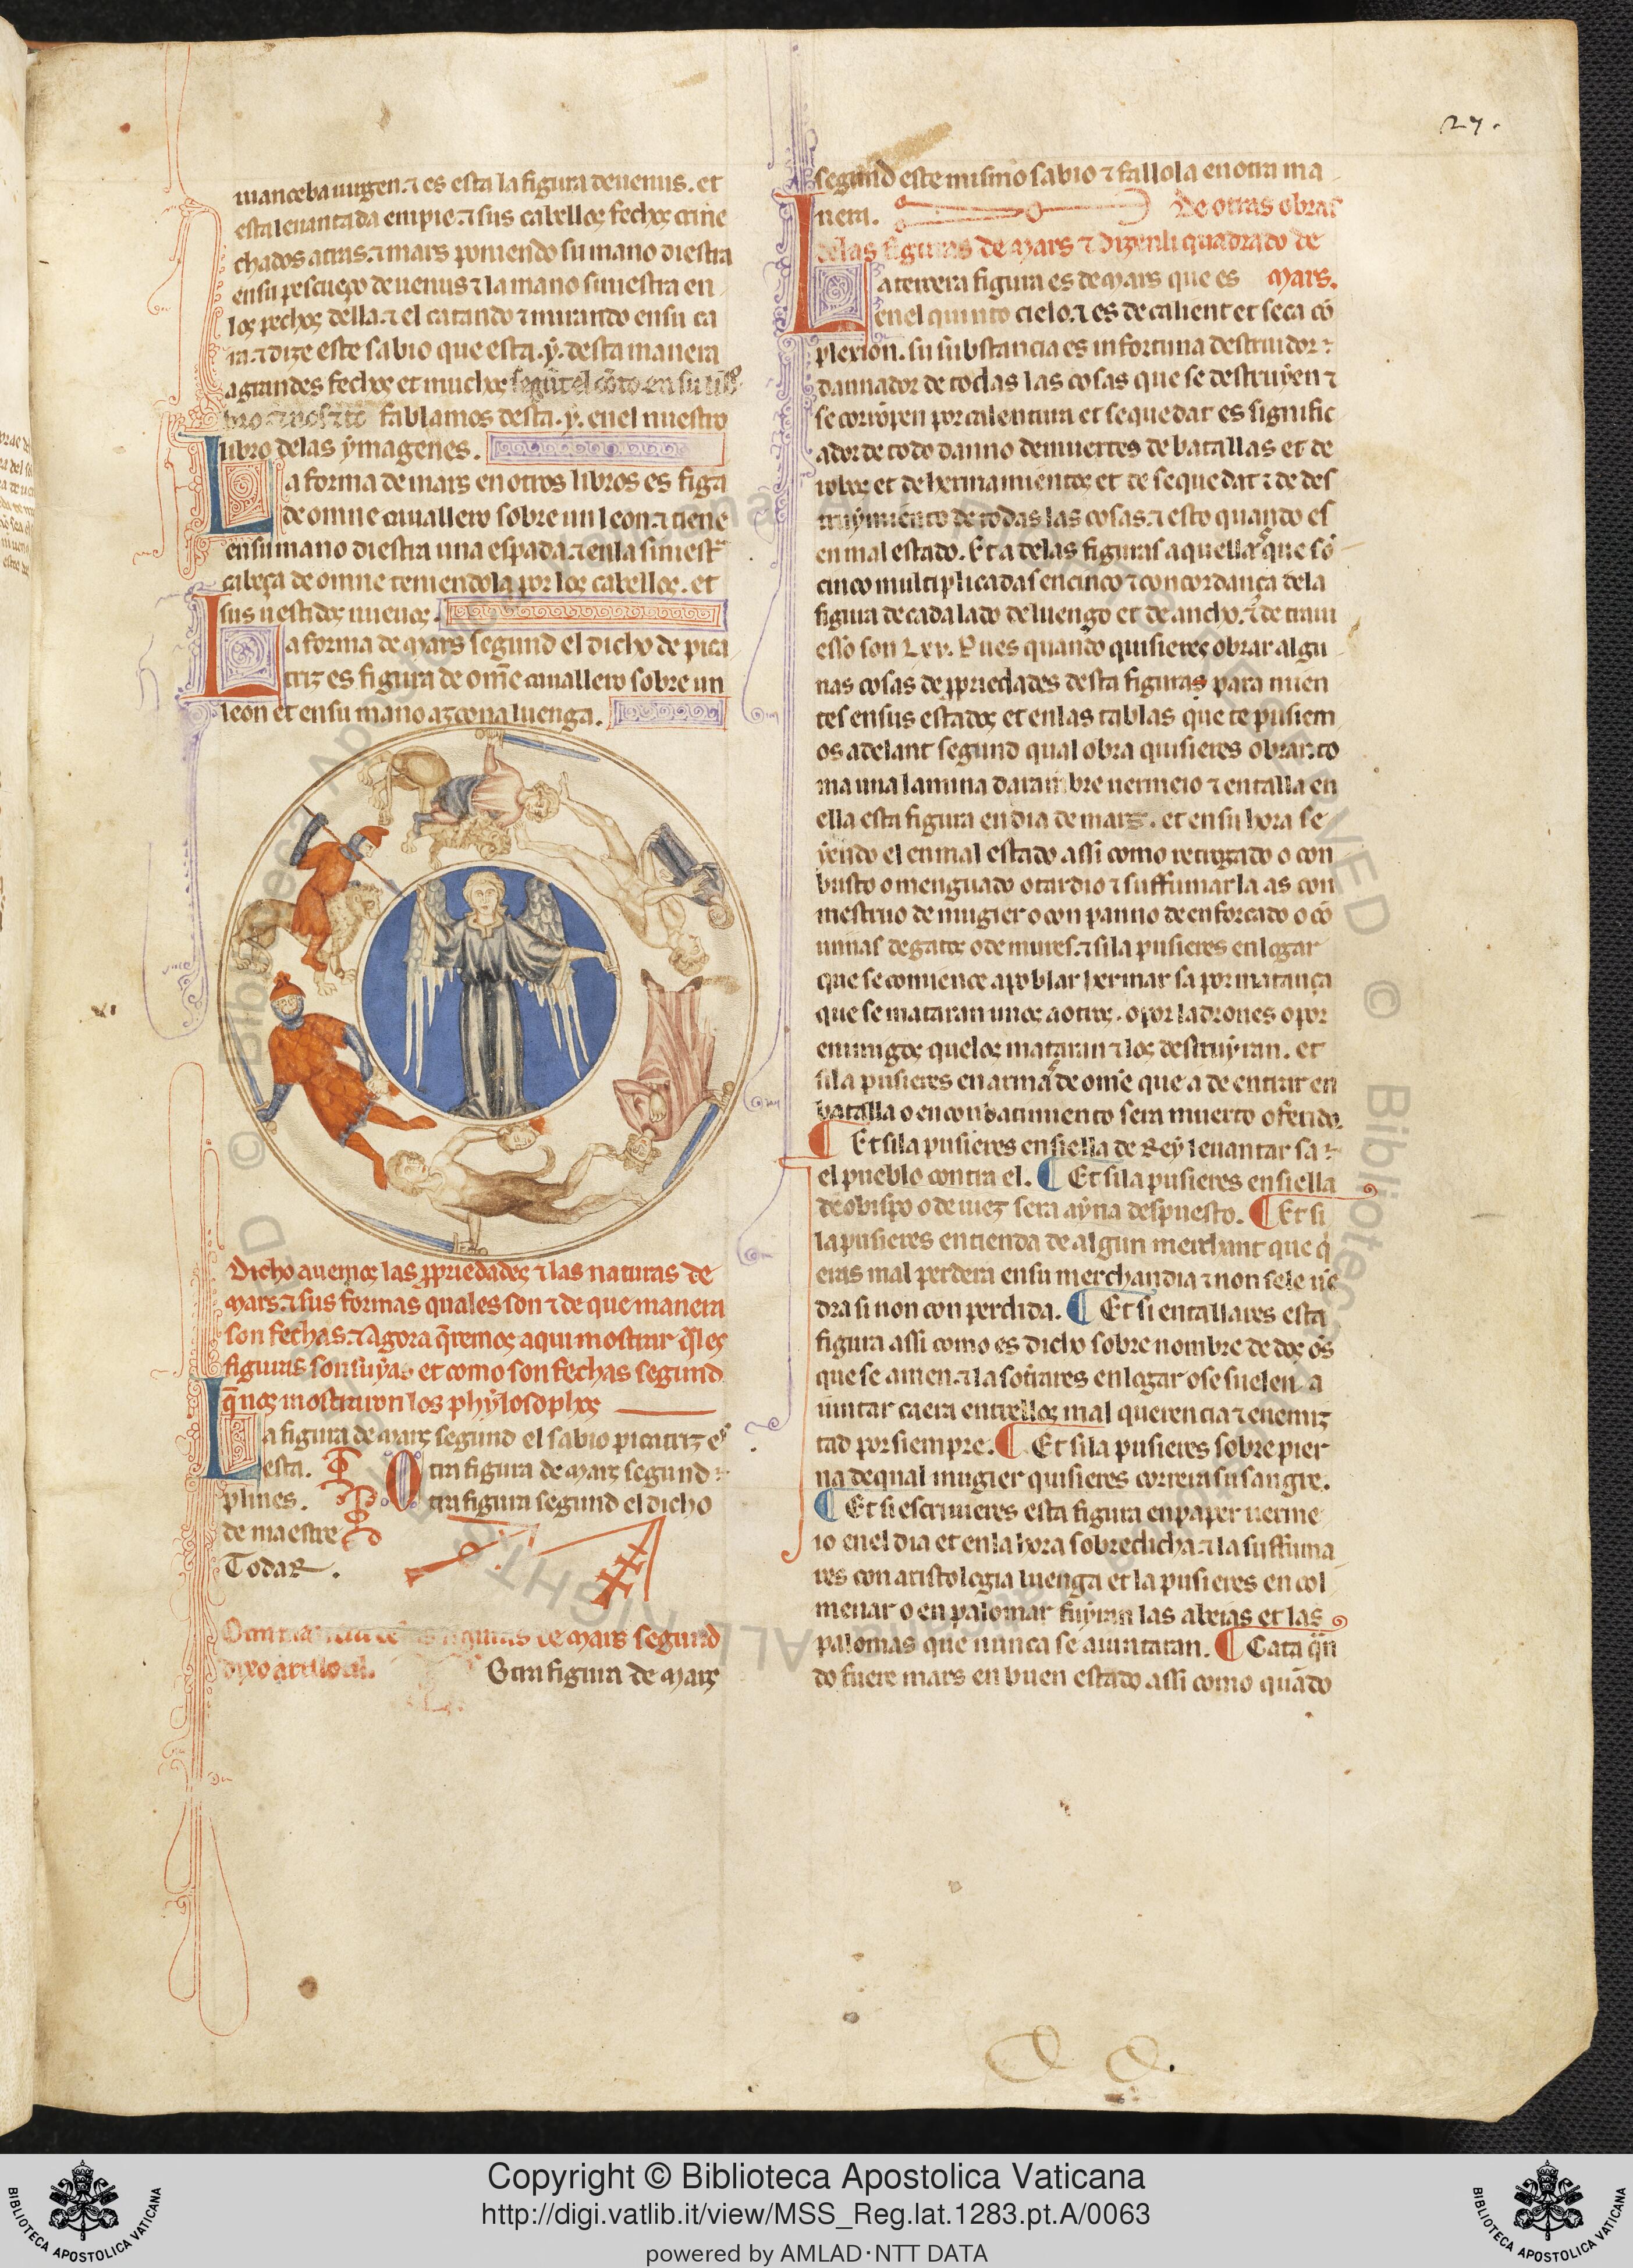 27.
manceba uirgen. ⁊ es esta la figura de uenus. et
esta leuantada en pie. ⁊ sus cabellos fechos crine
chados atras. ⁊ mars poniendo su mano diestra
en su pescueço de uenus ⁊ la mano siniestra en
los pechos della. ⁊ el catando ⁊ mirando en su ca
ra. ⁊ dize este sabio que esta .ẏ. desta manera
a grandes fechos et muchos
fablamos desta .ẏ. en el nuestro
libro delas ẏmagenes.
La forma de mars en otros libros es figa
de omne cauallero sobre un leon. ⁊ tiene
en su mano diestra una espada. ⁊ en la siniestra
cabeça de omne teniendola por los cabellos. et
sus uestidos nueuos.
La forma de mars segund el dicho de pica
triz es figura de om̄e cauallero sobre un
leon et en su mano azcona luenga.
Dicho auemos las propriedades ⁊ las naturas de
mars. ⁊ sus formas quales son ⁊ de que manera
son fechas. ⁊ Agora q̄remos aqui mostrar q̄les
figuras son suẏas et como son fechas segund
q̄ nos mostraron los phẏlosophos
La figura de mars segund el sabio picatriz es
esta. Otra figura de mars segund
plines. Otra figura segund el dicho
de maestre
Todar.
Otra figuras de mars segund
dixo
Otra figura de mars
segund este mismo sabio ⁊ fallola en otra ma
nera. De otras obras
delas figuras de mars ⁊ dizenli quadrado de
La tercera figura es de mars que es mars.
en el quinto cielo. ⁊ es de calient et seca cō
plexion. su substancia es infortuna destruidor ⁊
dannador de todas las cosas que se destruẏen ⁊
se corrōpen por calentura et sequedat es signific
ador de todo danno de muertes de batallas et de
robos et de hermamientos et de sequedat ⁊ de des
truẏmiento de todas las cosas. ⁊ esto quando es
en mal estado. Et a delas figuras aquella que sō
cinco multiplicadas en cinco ⁊ concordança dela
figura de cada lado de luengo et de ancho. ⁊ de traui
esso son Lxv. Pues quando quisieres obrar algu
nas cosas de propriedades desta figuras para mien
tes en sus estados et en las tablas que te pusiem
os adelant segund qual obra quisieres obrar. to
ma una lamina darambre uermeio ⁊ entalla en
ella esta figura en dia de mars. et en su hora se
ẏendo el en mal estado assi como retrogado o con
busto o menguado o tardio ⁊ suffumarla as con
mestruo de mugier o con panno de enforcado o cō
urinas de gatos o de mures. ⁊ si la pusieres en logar
que se comience a poblar hermar sa por matança
que se mataran unos a otros. o por ladrones o por
enimigos que los mataran ⁊ los destruẏran. et
si la pusieres en arma de om̄e que a de entrar en
batalla o en conbatimiento sera muerto o ferido.
¶ Et si la pusieres en siella de Reẏ leuantar sa
el pueblo contra el. ¶ Et si la pusieres en siella
de obispo o de iuez sera aẏna despuesto. ¶ Et si
la pusieres en tienda de algun merchant que q̄
eras mal perdera en su merchandia ⁊ non sele uē
dra si non con perdida. ¶ Et si entallares esta
figura assi como es dicho sobre nombre de dos om̄s
que se amen. ⁊ la soterrares en logar o se suelen a
iuntar caera entrellos mal querencia ⁊ enemiz
tad por siempre. ¶ Et si la pusieres sobre pier
na dequal mugier quisieres correra su sangre.
¶ Et si escriuieres esta figura en paper uerme
io en el dia et en la hora sobredicha. ⁊ la suffuma
res con aristologia luenga et la pusieres en col
menar o en palomar fuẏran las abeias et las
palomas que nunca se aiuntaran. ¶ Cata q̄n
do fuere mars en buen estado assi como quādo
Copyright © Biblioteca Apostolica Vaticana
http://digi.vatlib.it/view/MSS_Reg.lat.1283.pt.A/0063
powered by AMLAD·NTT DATA
BIBLIOTECA APOSTOLICA VATICANA
BIBLIOTECA APOSTOLICA VATICANA